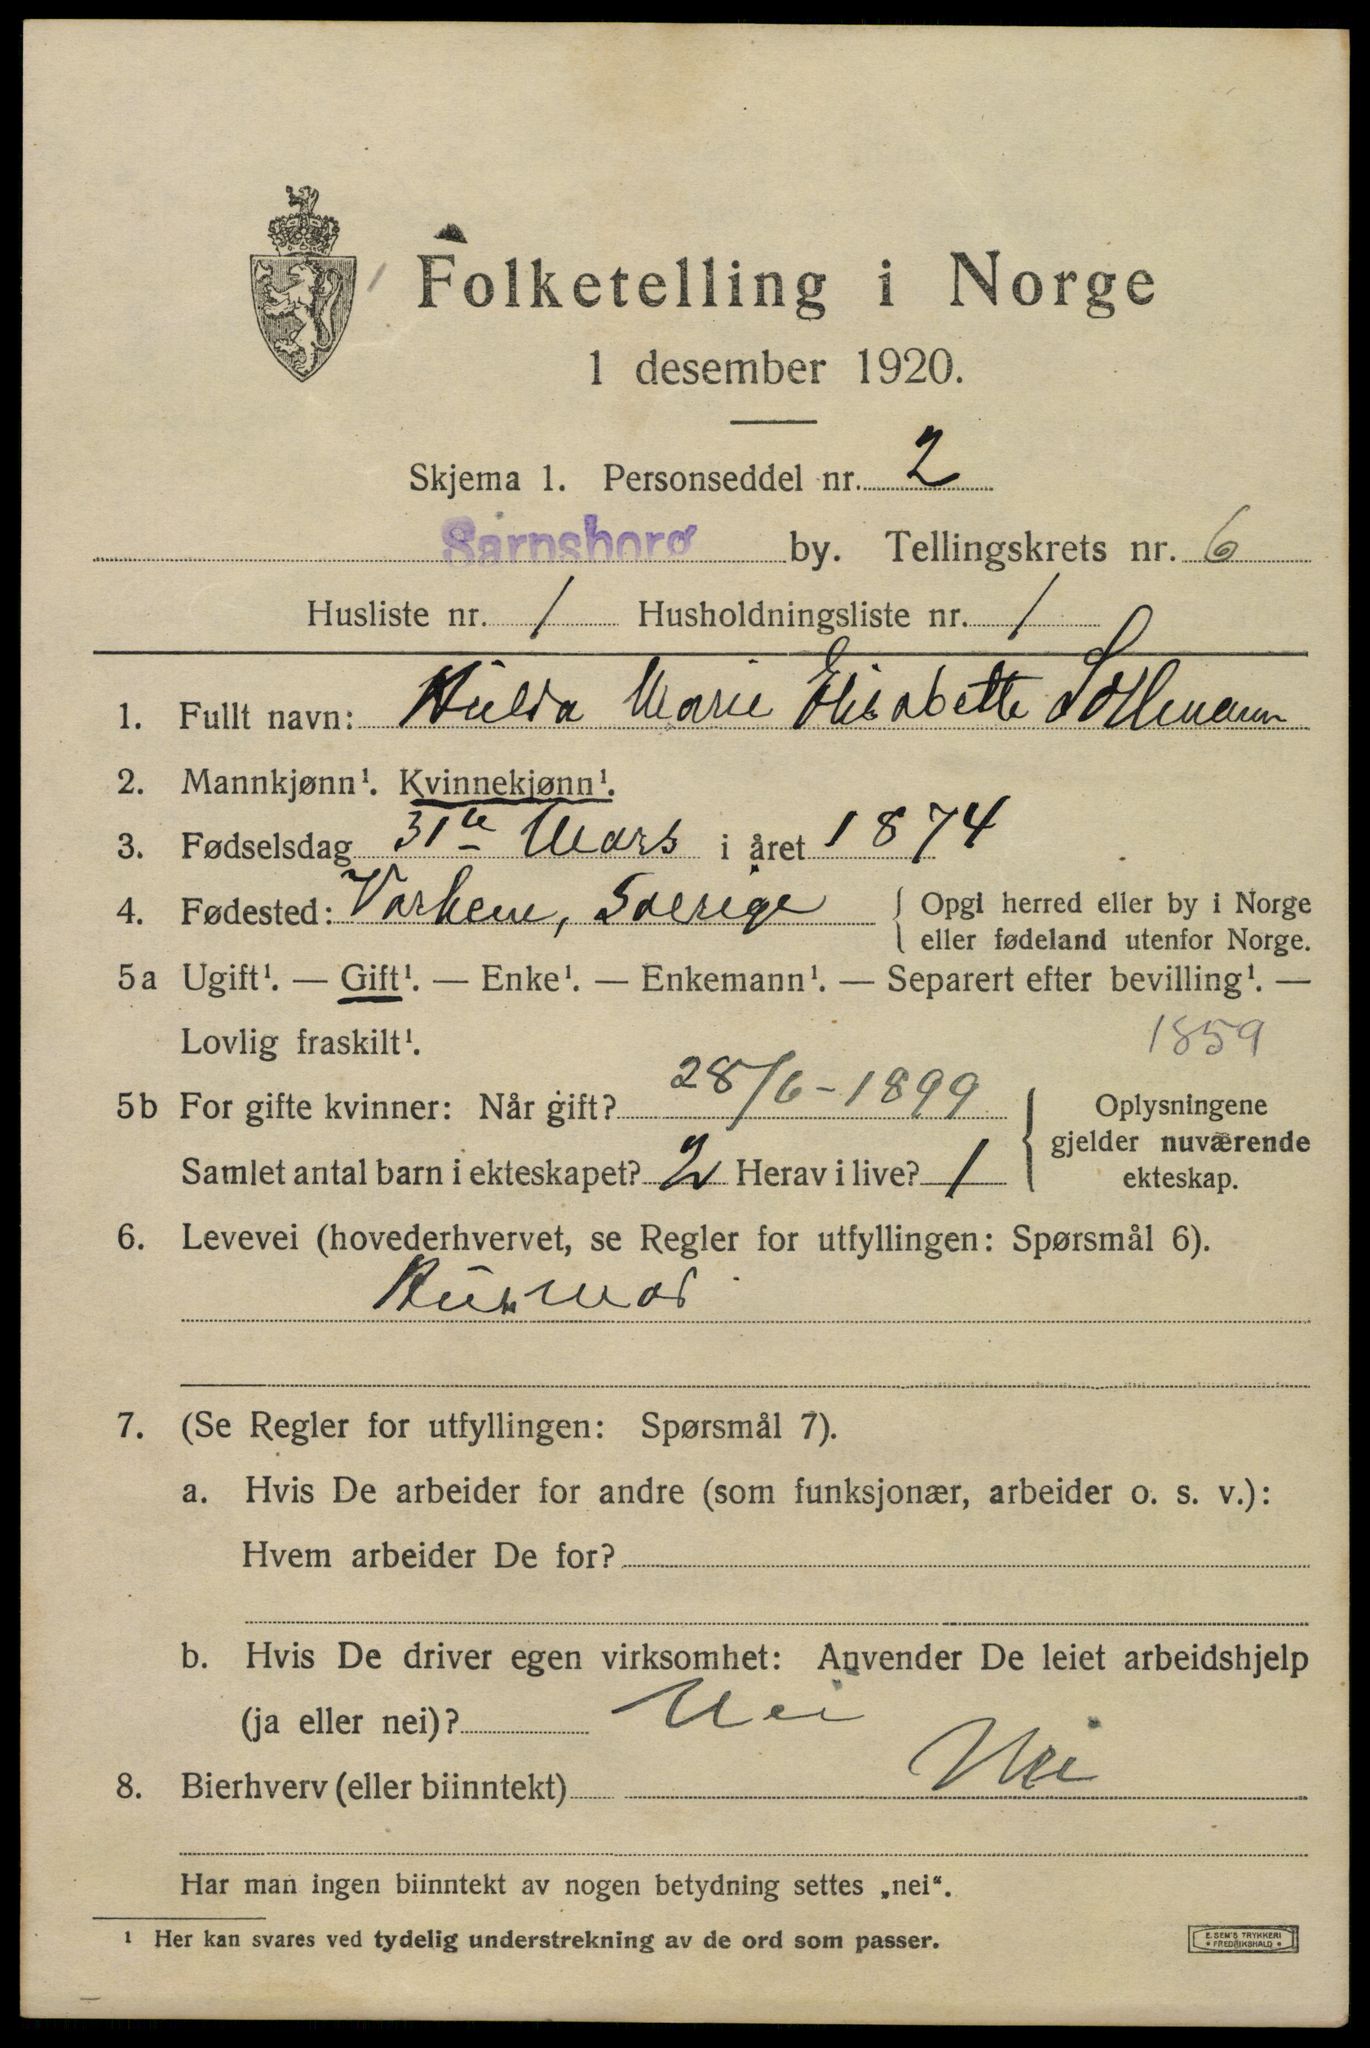 Folketelling i Norge
1 desember 1920.
Skjema 1. Personseddel nr. 2
Sarpsborg by. Tellingskrets nr. 6
Husliste nr. 1 Husholdningsliste nr. 1
1. Fullt navn: Hulda Marie Elisabette
2. Mannkjønn¹. Kvinnekjønn¹.
3. Fødselsdag 31te Mars i året 1874
4. Fødested: Varhem, Sverige { Opgi herred eller by i Norge
eller fødeland utenfor Norge.
5a Ugift¹. — Gift¹. — Enke¹. — Enkemann¹. — Separert efter bevilling¹. —
Lovlig fraskilt¹. 1859
5b For gifte kvinner: Når gift? 28/6-1899 { Oplysningene
gjelder nuværende
Samlet antal barn i ekteskapet? 2 Herav i live? 1 ekteskap.
6. Levevei (hovederhvervet, se Regler for utfyllingen: Spørsmål 6).
Husmor
7. (Se Regler for utfyllingen: Spørsmål 7).
a. Hvis De arbeider for andre (som funksjonær, arbeider o. s. v.):
Hvem arbeider De for?
b. Hvis De driver egen virksomhet: Anvender De leiet arbeidshjelp
(ja eller nei)? Nei
8. Bierhverv (eller biinntekt) Nei
Har man ingen biinntekt av nogen betydning settes „nei“.
¹ Her kan svares ved tydelig understrekning av de ord som passer.
E. SEM'S TRYKKERI
• FREDRIKSHALD •